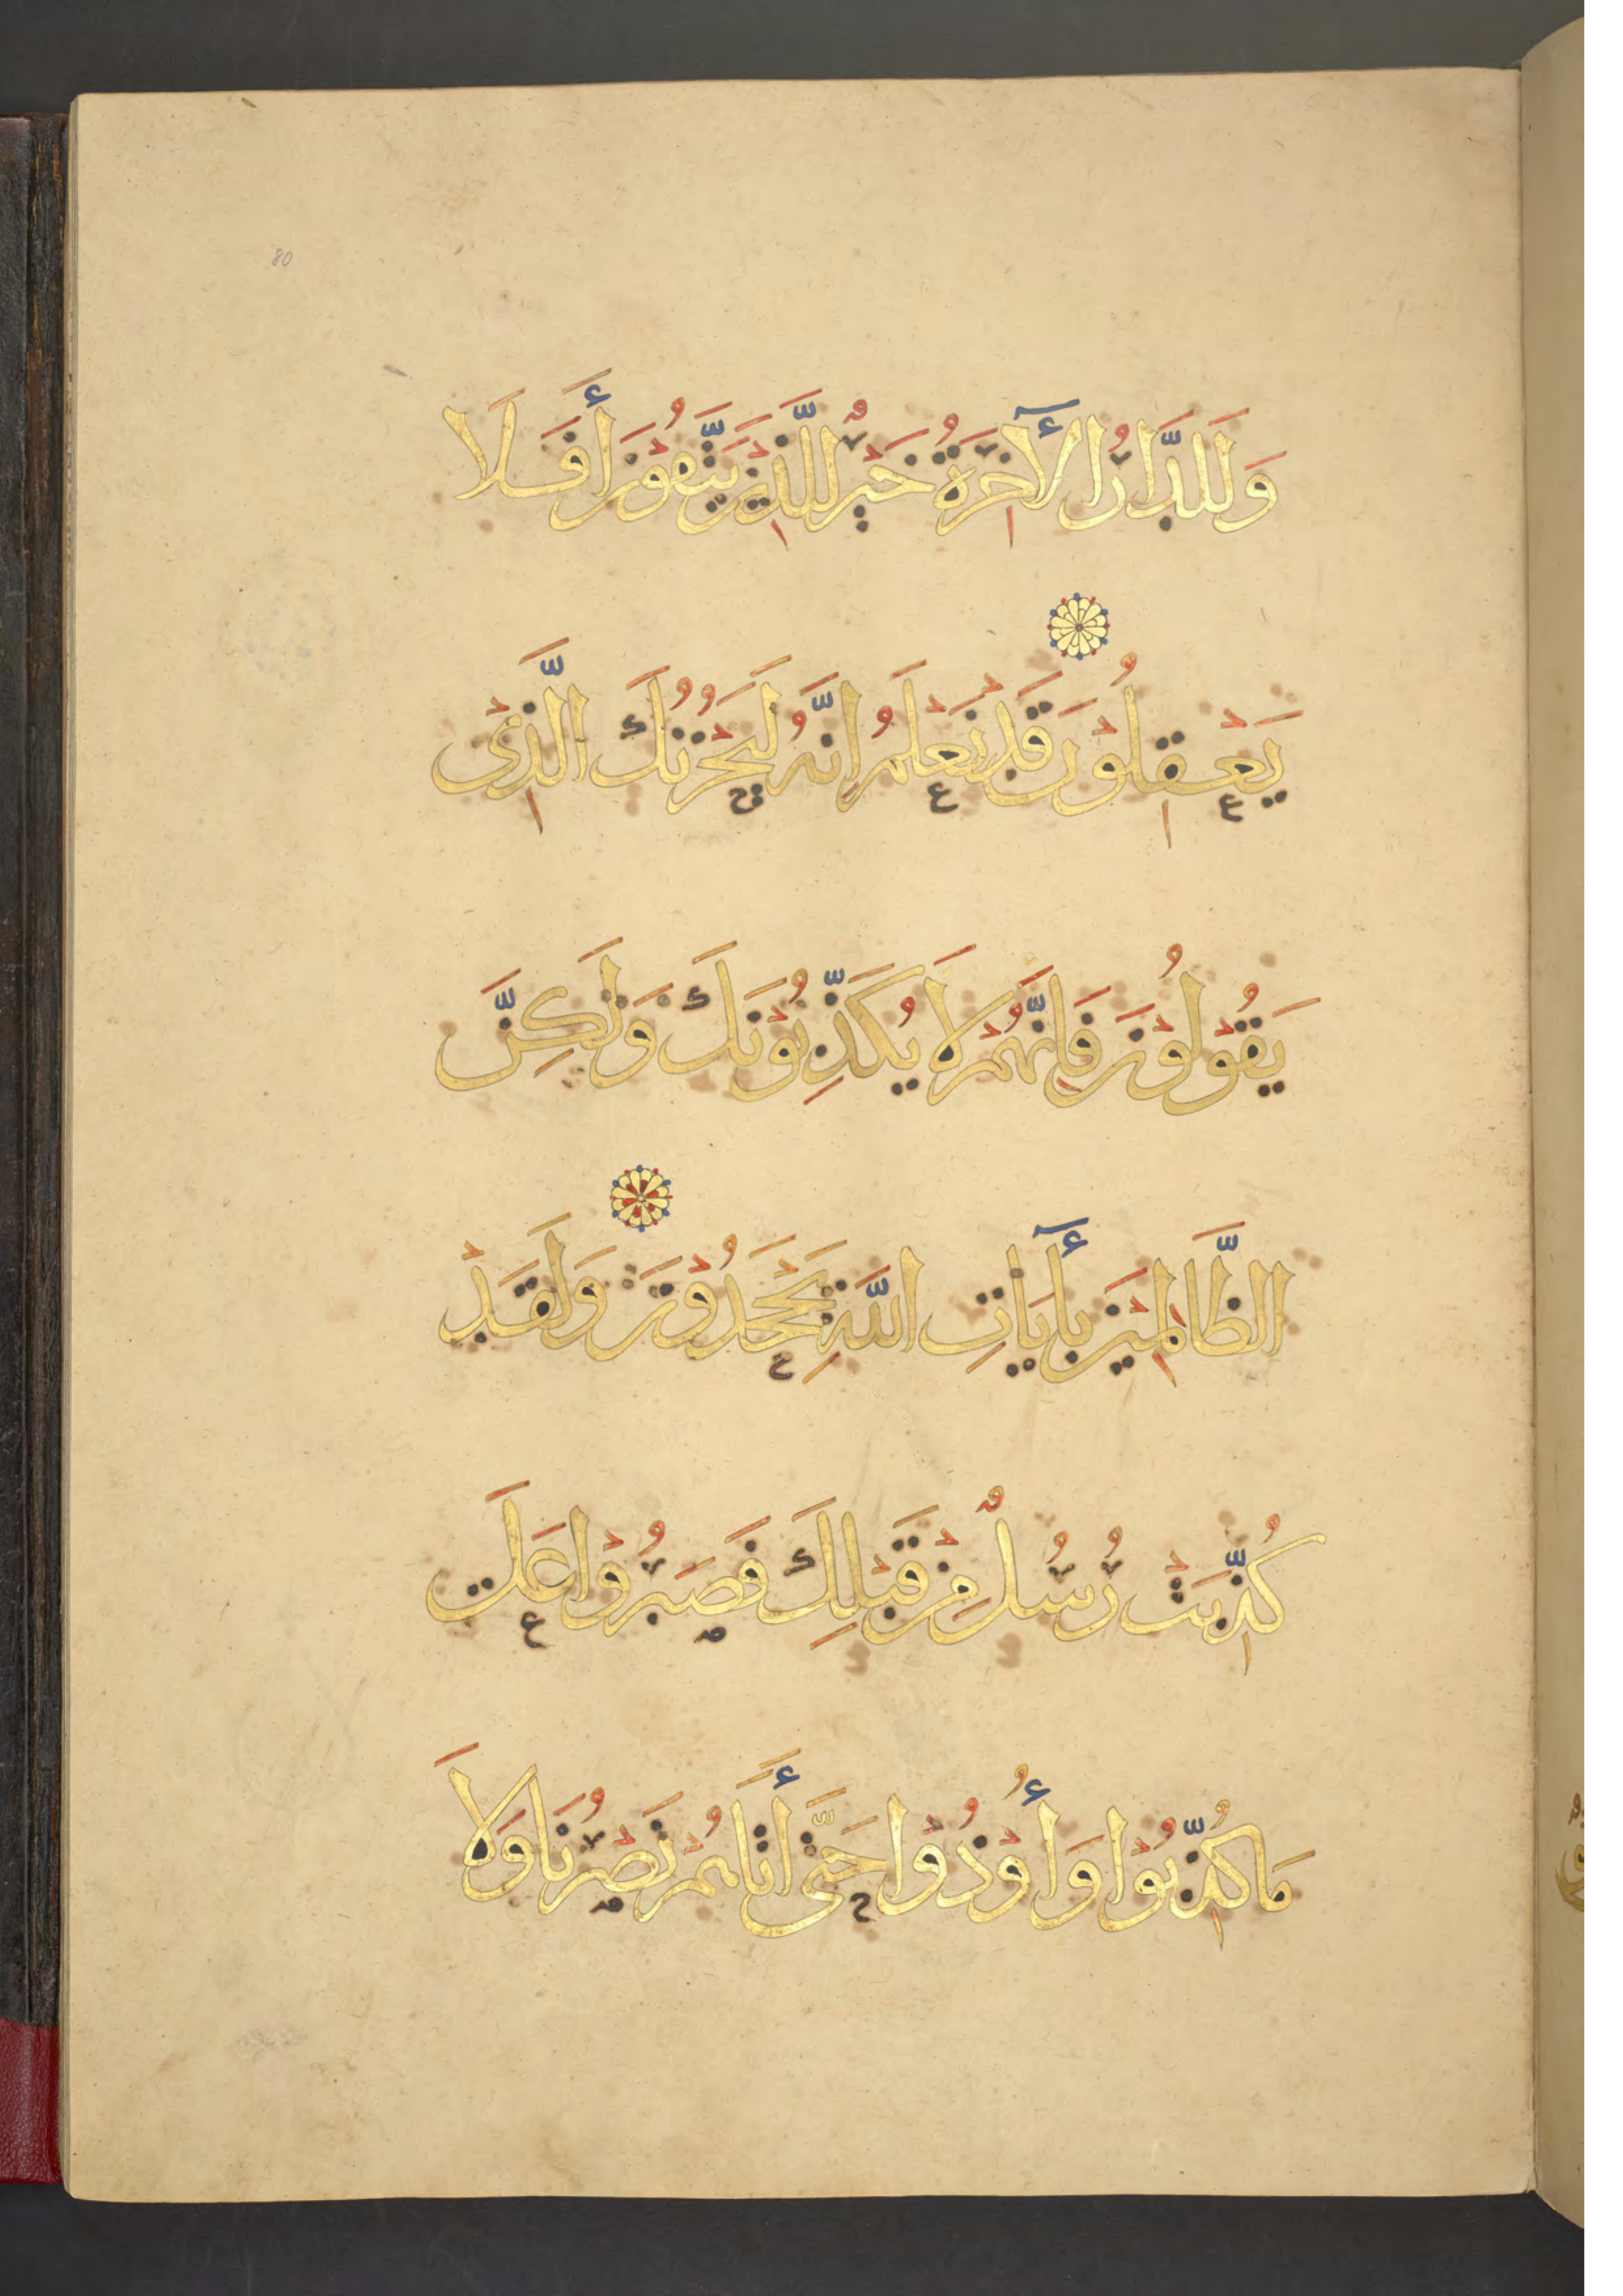 80
وَلَلدَّارُ الْآخِرَةُ خَيْرٌ لِلَّذِيْنَ يَتَّقُوْنَ أَفَلَا
يَعْقِلُوْنَ قَدْ نَعْلَمُ اِنَّهُ لَيَحْزُنُكَ الَّذِىْ
يَقُوْلُوْنَ فَاِنَّهُمْ لَا يُكَذِّبُوْنَكَ وَلَكِنَّ
الظَّالِمِيْنَ بِأٓيَاتِ اللَّهِ يَجْحَدُوْنَ وَلَقَدْ
كُذِّبَتْ رُسُلٌ مِنْ قَبْلِكَ فَصَبَرُوْا عَلَى
مَا كُذِّبُوْا وَأُوْذُوْا حَتَّى أَتَاهُمْ نَصْرُنَا وَلَا